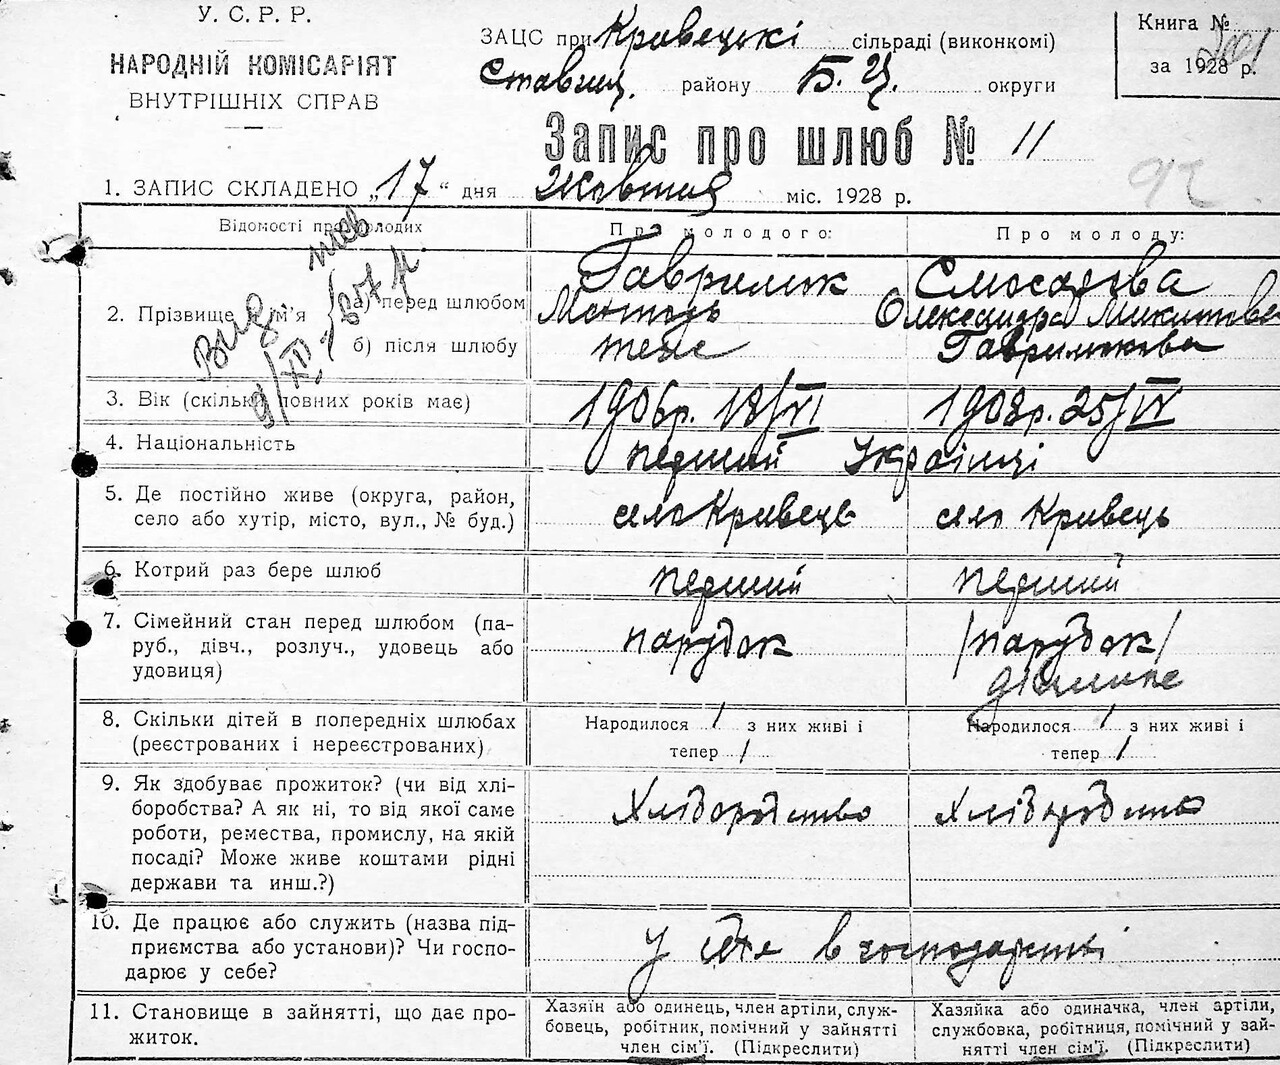 У. С. Р. Р.
НАРОДНІЙ КОМІСАРІЯТ
ВНУТРІШНІХ СПРАВ
ЗАЦС при Кривецькі сільраді (виконкомі)
Ставищ. району Б. Ц. округи
Книга №
за 1928 р.
Запис про шлюб № 11
92
1. ЗАПИС СКЛАДЕНО „17“ дня Жовтня міс. 1928 р.
Відомості про молодих
Про молодого:
Про молоду:
2. Прізвище й ім’я
а) перед шлюбом
б) після шлюбу
Вид
9/XII
Гаврилюк
теж
Слюсарова
Олександра Микитовна
Гаврилюкова
3. Вік (скільки повних років має)
1906р. 18/VI
1908р. 25/IV
4. Національність
перший Українці
5. Де постійно живе (округа, район,
село або хутір, місто, вул., № буд.)
село Кривець
село Кривець
6. Котрий раз бере шлюб
перший
перший
7. Сімейний стан перед шлюбом (па-
руб., дівч., розлуч., удовець або
удовиця)
парубок
/парубок/
8. Скільки дітей в попередніх шлюбах
(реєстрованих і нереєстрованих)
Народилося / з них живі і
тепер /
Народилося / з них живі і
тепер /
9. Як здобуває прожиток? (чи від хлі-
боробства? А як ні, то від якої саме
роботи, ремества, промислу, на якій
посаді? Може живе коштами рідні
держави та инш.?)
Хліборобство
Хліборобство
10. Де працює або служить (назва під-
приємства або установи)? Чи госпо-
дарює у себе?
У себе в господарстві
11. Становище в зайнятті, що дає про-
житок.
Хазяїн або одинець, член артіли, служ-
бовець, робітник, помічний у зайнятті
член сім’ї. (Підкреслити)
Хазяйка або одиначка, член артіли,
службовка, робітниця, помічний у зай-
нятті член сім’ї. (Підкреслити)